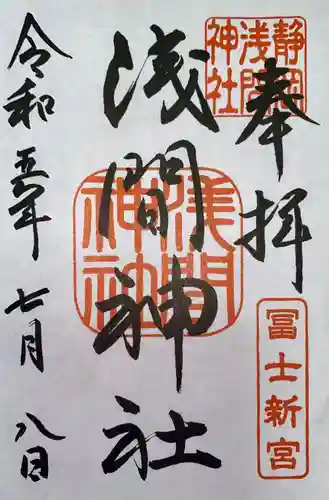 奉拝
静岡浅間神社
冨士新宮
浅間神社
浅間神社
令和五年七月八日